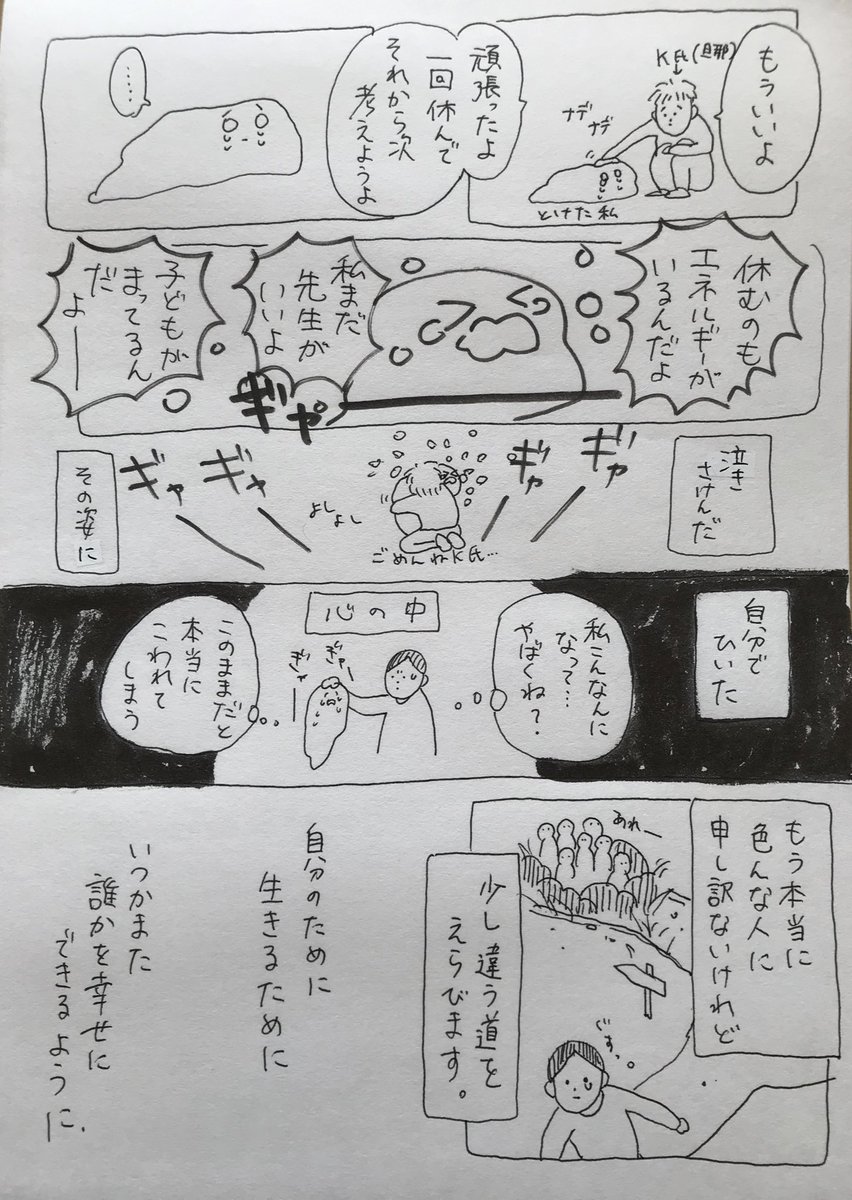 もういいよ
K氏(旦那)
ナデ
ナデ
とけた私
頑張ったよ
一回休んで
それから次
考えようよ
……
休むのも
エネルギーが
いるんだよ
くっ
私まだ
先生が
いいよ
子どもが
まってるん
だ
よー
ギャ
泣き
さけんだ
ギャ
ギャ
ギャ
ギャ
よしよし
ごめんねK氏…
その姿に
自分で
ひいた
私こんなんに
なって…
やばくね?
心の中
ぎゃー
ぎゃー
このままだと
本当に
こわれて
しまう
もう本当に
色んな人に
申し訳ないけれど
あれー
ぐすっ。
少し違う道を
えらびます。
自分のために
生きるために
いつかまた
誰かを幸せに
できるように.